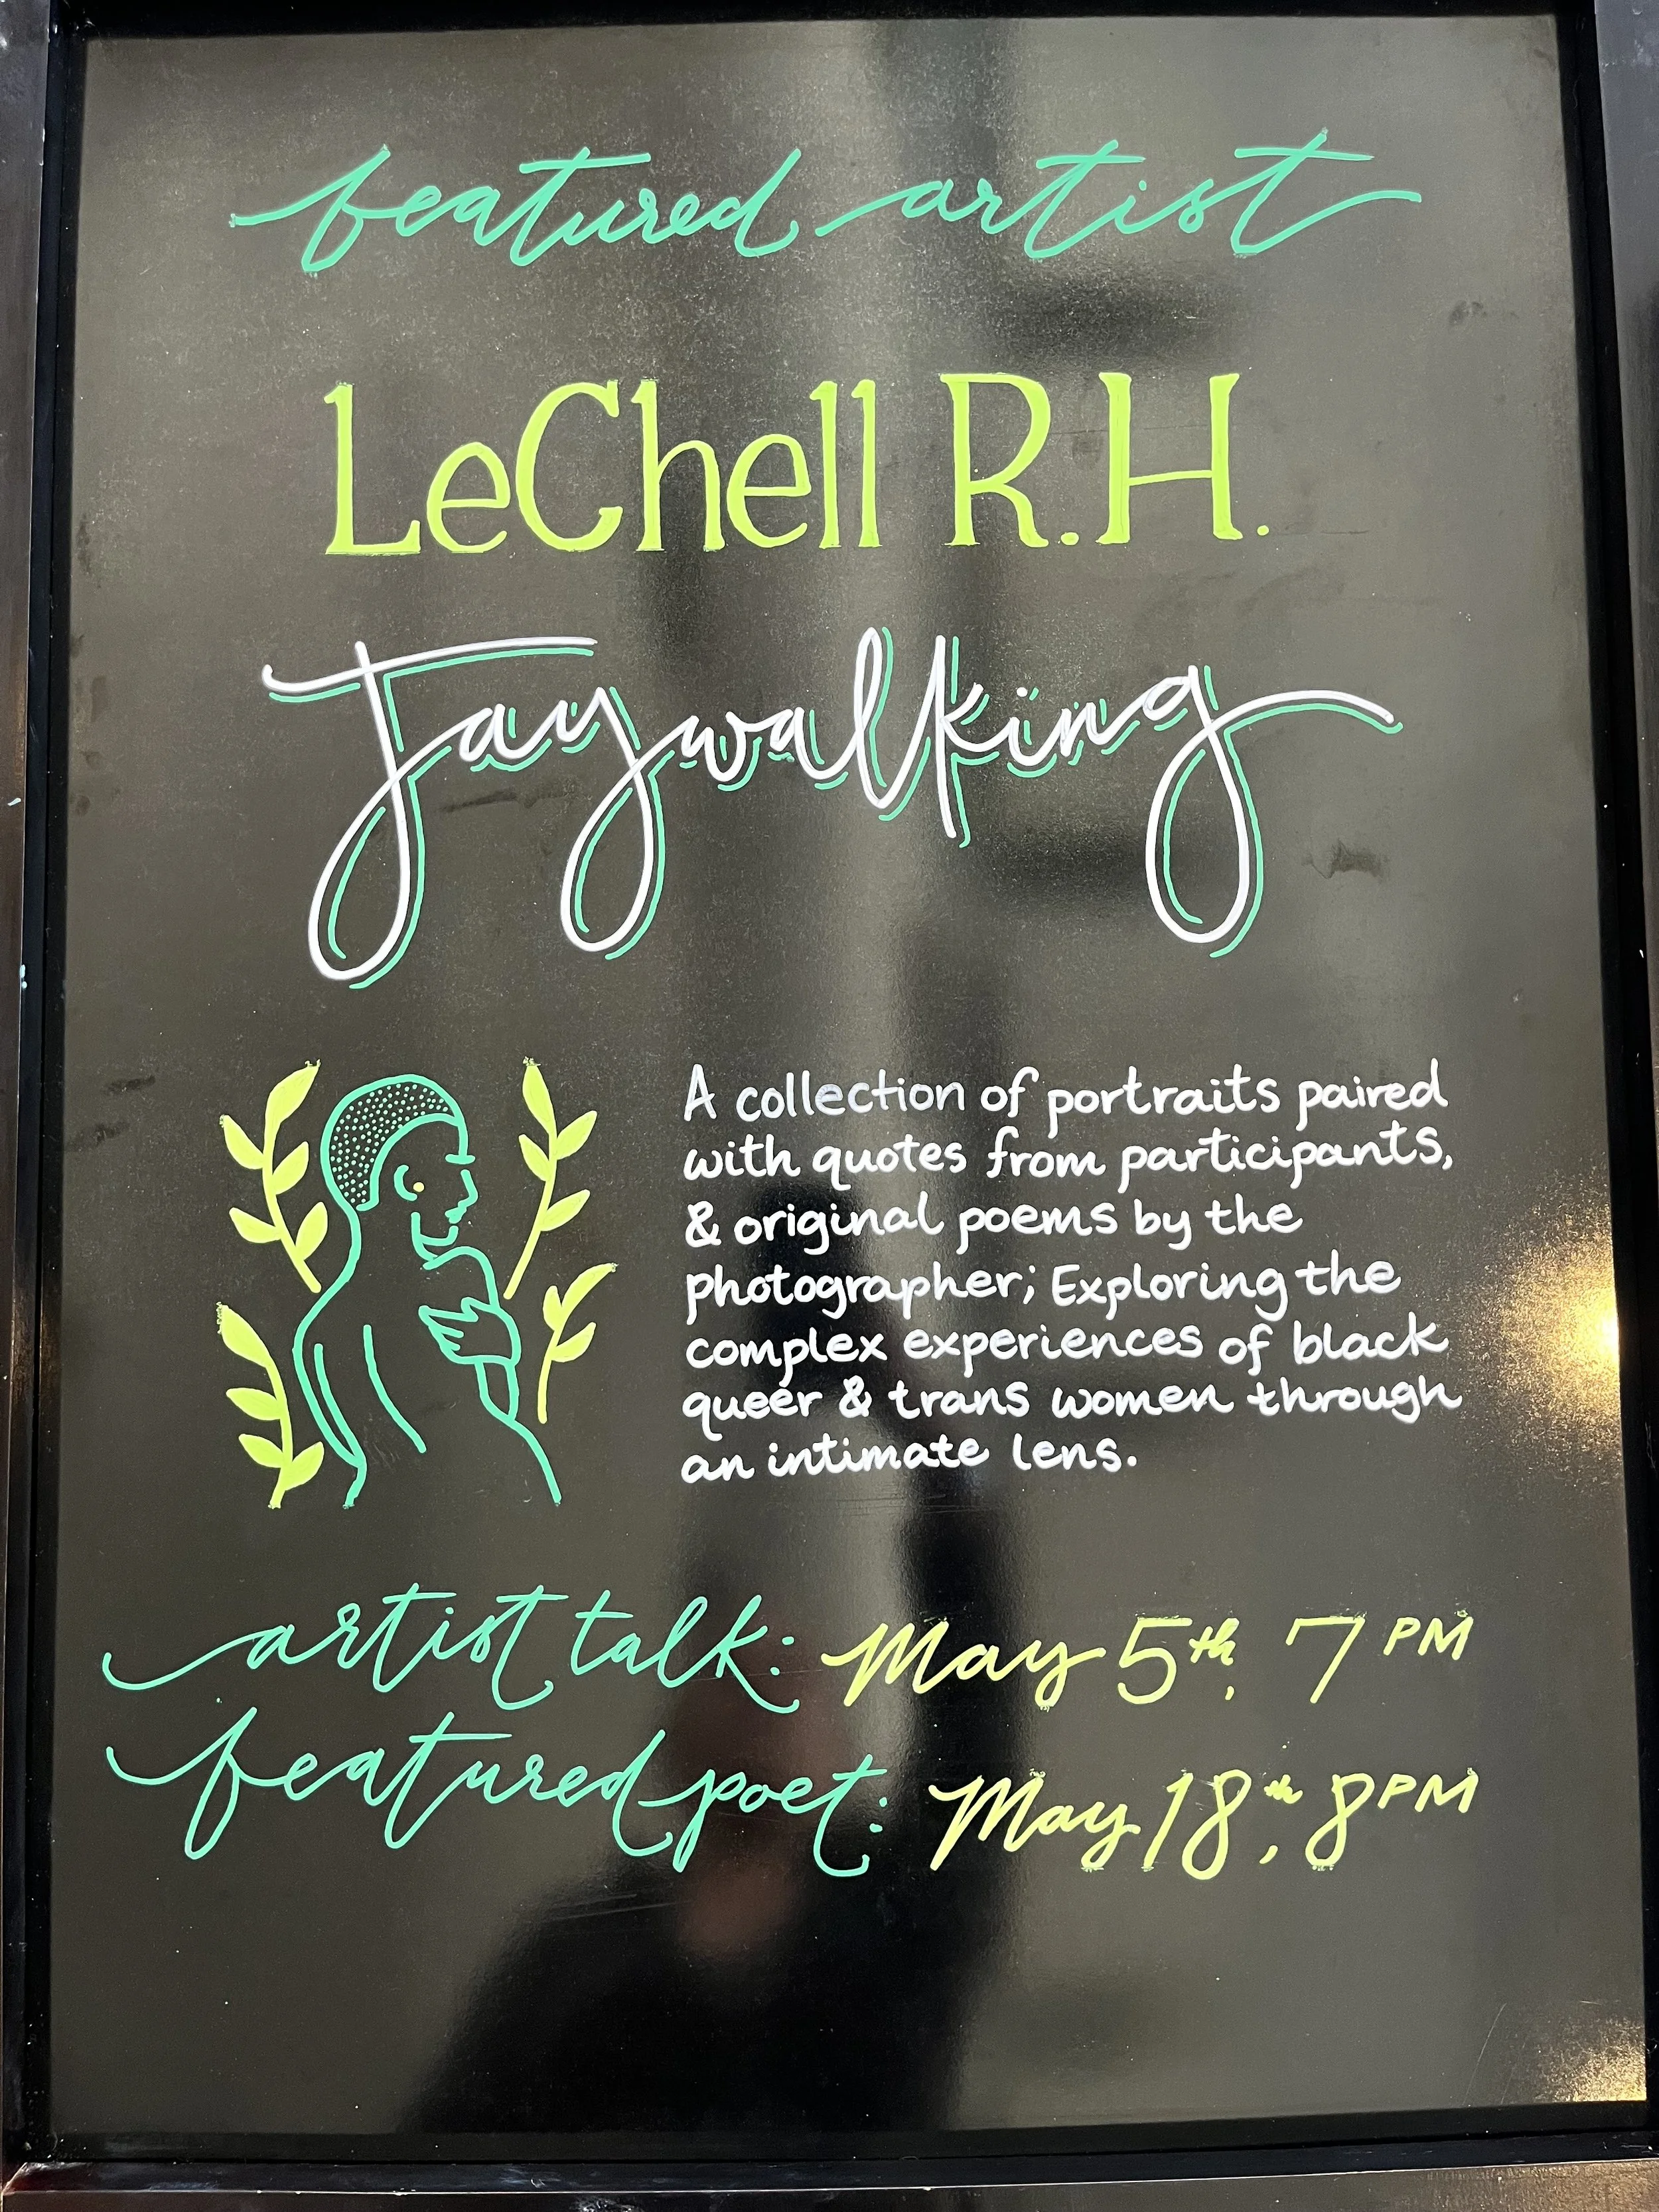 featured artist
LeChell R.H.
Jaywalking
A collection of portraits paired
with quotes from participants,
& original poems by the
photographer; Exploring the
complex experiences of black
queer & trans women through
an intimate lens.
artist talk: May 5th, 7 PM
featured poet: May 18th, 8 PM